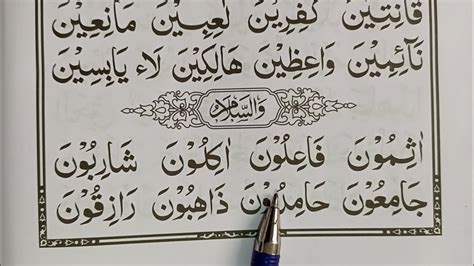 قَانِتِيْنَ كٰفِرِيْنَ لٰعِبِيْنَ مَانِعِيْنَ
نَآئِمِيْنَ وَاعِظِيْنَ هَالِكِيْنَ لَاء يَابِسِيْنَ
وَالسَّلَامُ
اٰثِمُوْنَ فَاعِلُوْنَ اٰكِلُوْنَ شَارِبُوْنَ
جَامِعُوْنَ حَامِدُوْنَ ذَاهِبُوْنَ رَازِقُوْنَ